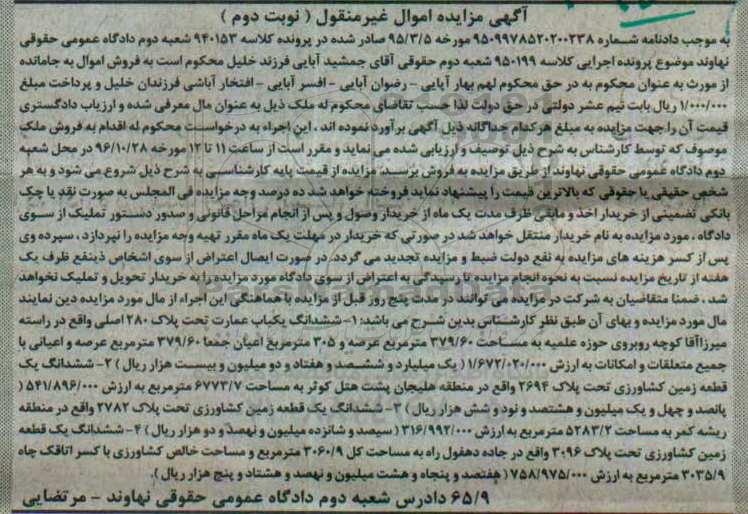 آگهی مزایده اموال غیرمنقول ( نوبت دوم )
به موجب دادنامه شماره ۹۵۰۹۹۷۸۵۲۰۲۰۰۲۳۸ مورخه ۹۵/۳/۵ صادر شده در پرونده کلاسه ۹۴۰۱۵۳ شعبه دوم دادگاه عمومی حقوقی
نهاوند موضوع پرونده اجرایی کلاسه ۹۵۰۱۹۹ شعبه دوم حقوقی آقای جمشید آبایی فرزند خلیل محکوم است به فروش اموال به جامانده
از مورث به عنوان محکوم به در حق محکوم لهم بهار آبایی - رضوان آبایی - افسر آبایی - افتخار آباشی فرزندان خلیل و پرداخت مبلغ
۱/۰۰۰/۰۰۰ ریال بابت نیم عشر دولتی در حق دولت لذا حسب تقاضای محکوم له ملک ذیل به عنوان مال معرفی شده و ارزیاب دادگستری
قیمت آن را جهت مزایده به مبلغ هرکدام جداگانه ذیل آگهی برآورد نموده اند ، این اجراء به درخواست محکوم له اقدام به فروش ملک
موصوف که توسط کارشناس به شرح ذیل توصیف و ارزیابی شده می نماید و مقرر است از ساعت ۱۱ تا ۱۲ مورخه ۹۶/۱۰/۲۸ در محل شعبه
دوم دادگاه عمومی حقوقی نهاوند از طریق مزایده به فروش برسد. مزایده از قیمت پایه کارشناسی به شرح ذیل شروع می شود و به هر
شخص حقیقی یا حقوقی که بالاترین قیمت را پیشنهاد نماید فروخته خواهد شد ده درصد وجه مزایده فی المجلس به صورت نقد یا چک
بانکی تضمینی از خریدار اخذ و مابقی ظرف مدت یک ماه از خریدار وصول و پس از انجام مراحل قانونی و صدور دستور تملیک از سوی
دادگاه ، مورد مزایده به نام خریدار منتقل خواهد شد در صورتی که خریدار در مهلت یک ماه مقرر تهیه وجه مزایده را نپردازد ، سپرده وی
پس از کسر هزینه های مزایده به نفع دولت ضبط و مزایده تجدید می گردد. در صورت ایصال اعتراض از سوی اشخاص ذینفع ظرف یک
هفته از تاریخ مزایده نسبت به نحوه انجام مزایده تا رسیدگی به اعتراض از سوی دادگاه مورد مزایده را به خریدار تحویل و تملیک نخواهد
شد ، ضمنا متقاضیان به شرکت در مزایده می توانند در مدت پنج روز قبل از مزایده با هماهنگی این اجراء از مال مورد مزایده دین نمایند
مال مورد مزایده و بهای آن طبق نظر کارشناس بدین شرح می باشد: ۱- ششدانگ یکباب عمارت تحت پلاک ۲۸۰ اصلی واقع در راسته
میرزاآقا کوچه روبروی حوزه علمیه به مساحت ۳۷۹/۶۰ مترمربع عرصه و ۳۰۵ مترمربع اعیان جمعا ۳۷۹/۶۰ مترمربع عرصه و اعیانی با
جمیع متعلقات و امکانات به ارزش ۱/۶۷۲/۰۲۰/۰۰۰ ( یک میلیارد و ششصد و هفتاد و دو میلیون و بیست هزار ریال ) ۲- ششدانگ یک
قطعه زمین کشاورزی تحت پلاک ۲۶۹۴ واقع در منطقه هلیجان پشت هتل کوثر به مساحت ۶۷۷۳/۷ مترمربع به ارزش ( ۵۴۱/۸۹۶/۰۰۰
پانصد و چهل و یک میلیون و هشتصد و نود و شش هزار ریال ) ۳- ششدانگ یک قطعه زمین کشاورزی تحت پلاک ۲۷۸۲ واقع در منطقه
ریشه کمر به مساحت ۵۲۸۳/۲ مترمربع به ارزش ۳۱۶/۹۹۲/۰۰۰ ( سیصد و شانزده میلیون و نهصد و دو هزار ریال ) ۴- ششدانگ یک قطعه
زمین کشاورزی تحت پلاک ۳۰۹۶ واقع در جاده دهفول راه به مساحت کل ۳۰۶۰/۹ مترمربع و مساحت خالص کشاورزی با کسر اتاقک چاه
۳۰۳۵/۹ مترمربع به ارزش ۷۵۸/۹۷۵/۰۰۰ ( هفتصد و پنجاه و هشت میلیون و نهصد و هشتاد و پنج هزار ریال ).
۶۵/۹ دادرس شعبه دوم دادگاه عمومی حقوقی نهاوند - مرتضایی